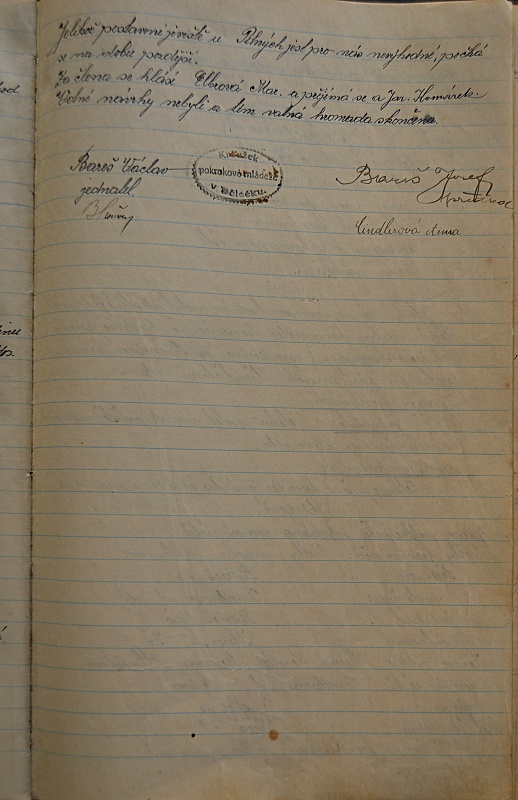 Jelikož postavení jeviště u Plných jest pro nás nevýhodné, počká
se na dobu pozdější.
Za člena se hlásí Elbrová Mar. a přijímá se a Jar. Komárek.
Volné návrhy nebyli a tím valná hromada skončena.
Bareš Václav
jednatel
Kroužek
pokrokové mládeže
v Bělečku.
Bareš Josef
Cindlerová Anna